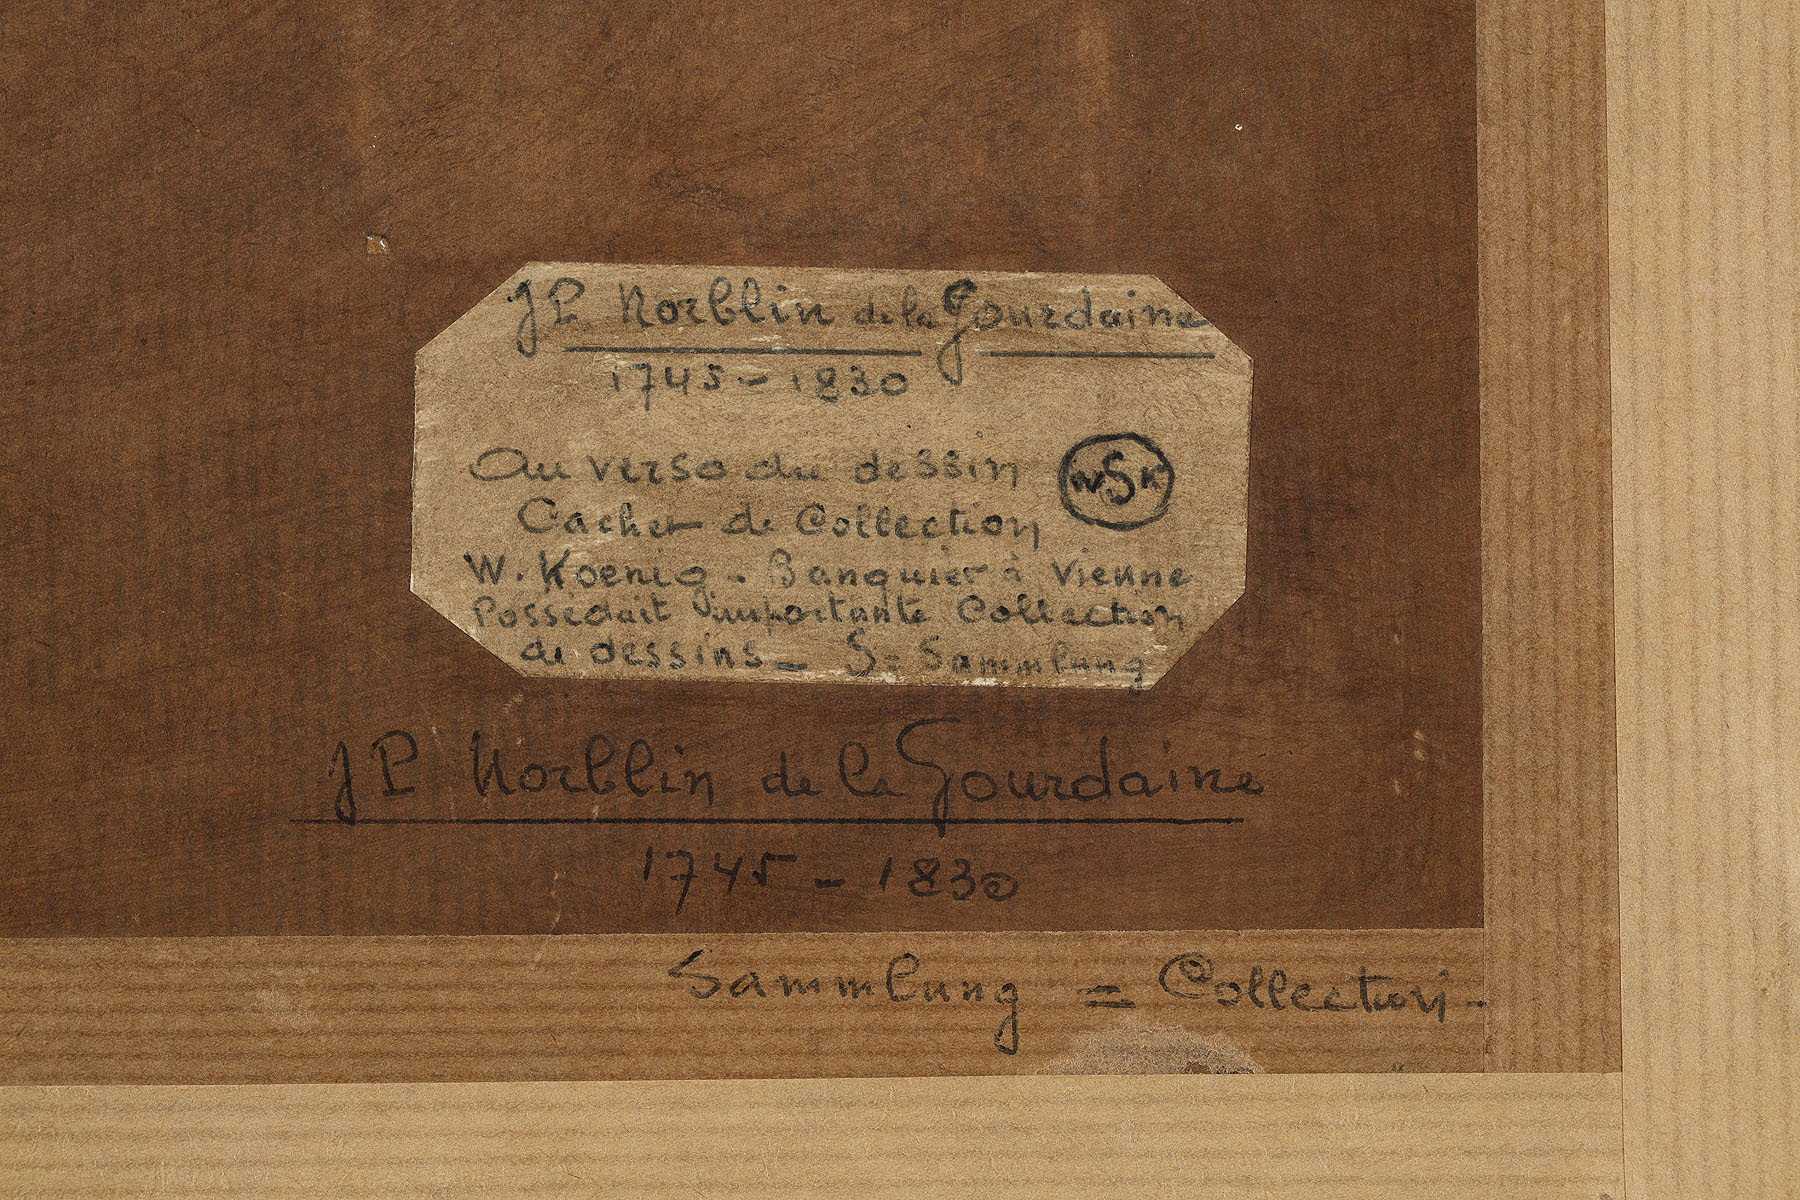 JP Norblin de la Gourdaine
1745-1830
Au verso du dessin
WSK
Cachet de Collection
W. Koenig - Banquier à Vienne
Possédait importante Collection
de dessins - S = Sammlung
JP Norblin de la Gourdaine
1745-1830
Sammlung = Collection-